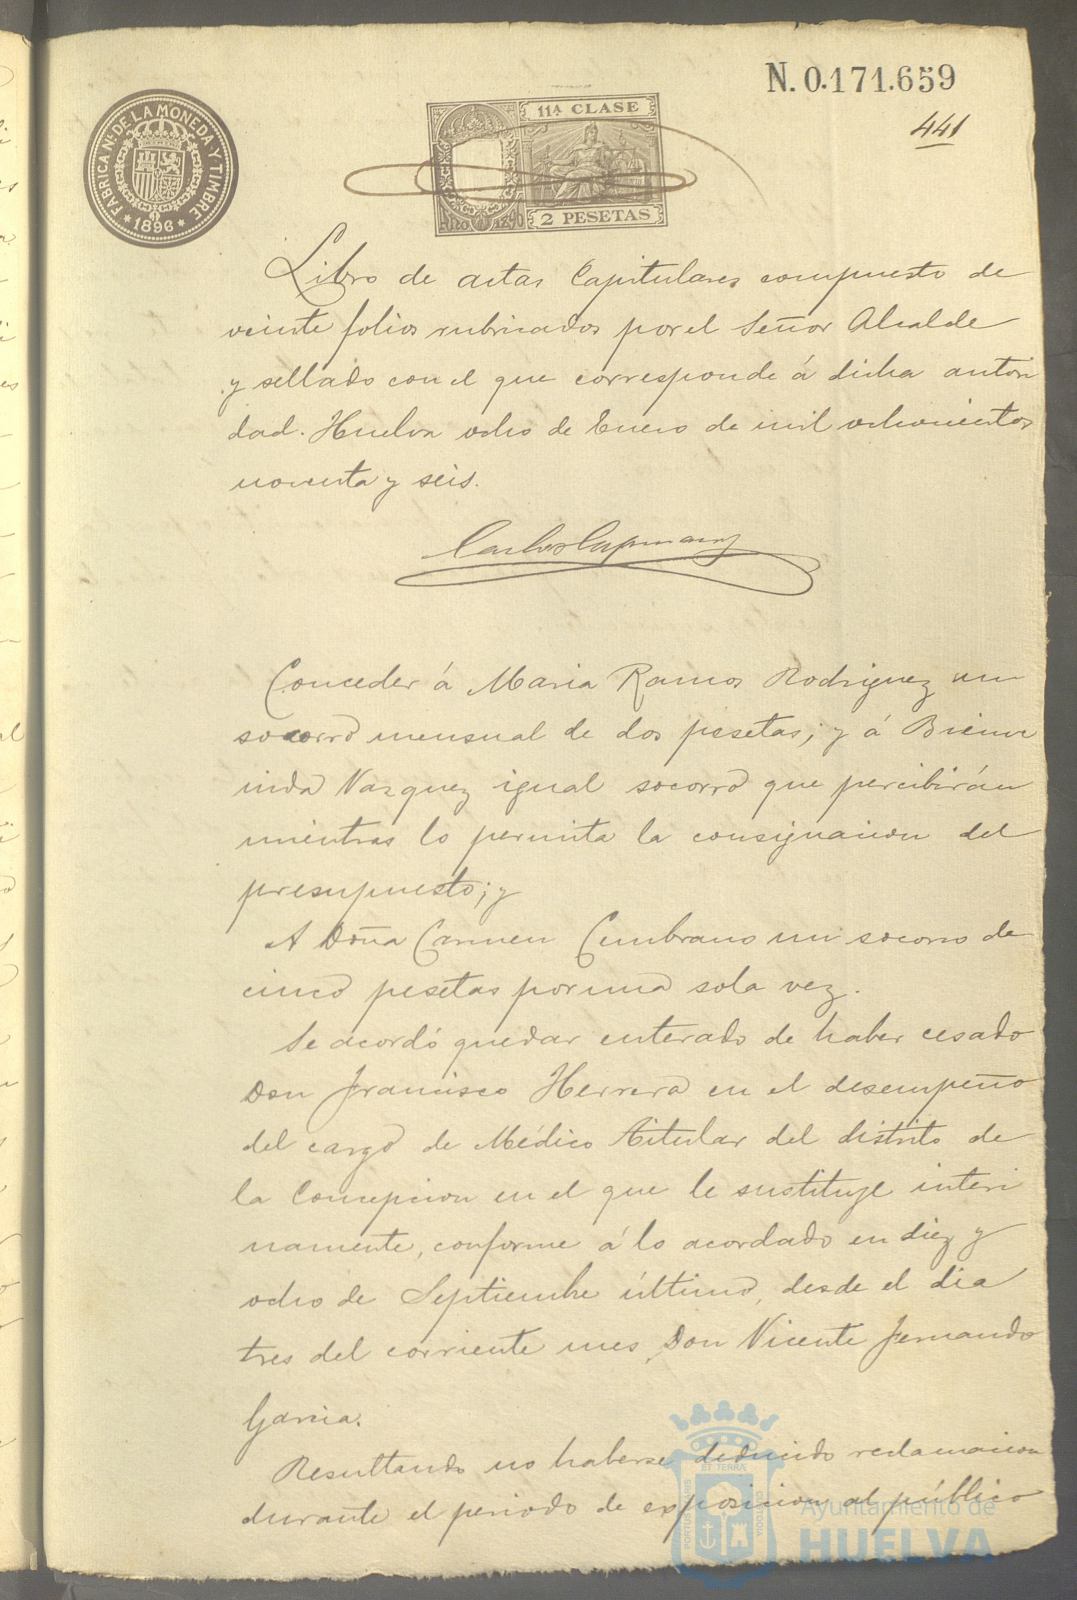 N. 0.171.659
441
FABRICA NL. DE LA MONEDA Y TIMBRE
1896
11A CLASE
Año 1896
2 PESETAS
Libro de actas Capitulares compuesto de
veinte folios rubricados por el Señor Alcalde
y sellado con el que corresponde á dicha autori
dad. Huelva ocho de Enero de mil ochocientos
noventa y seis.
Carlos
Conceder á Maria Ramos Rodriguez un
socorro mensual de dos pesetas; y á Bienve
nida Vazquez igual socorro que percibirán
mientras lo permita la consignacion del
presupuesto; y
A Doña Carmen Cumbrano un socorro de
cinco pesetas por una sola vez.
Se acordó quedar enterado de haber cesado
Don Francisco Herrera en el desempeño
del cargo de Médico titular del distrito de
la Concepcion en el que le sustituye interi
namente, conforme á lo acordado en diez y
ocho de Septiembre último, desde el dia
tres del corriente mes, Don Vicente Fernando
Garcia.
Resultando no haberse deducido reclamacion
durante el periodo de exposicion al público
PORTUS MARIS
ET TERRÆ
CUSTODIA
Ayuntamiento de
HUELVA